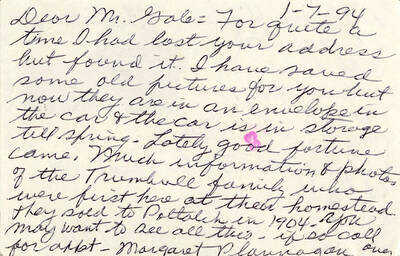 1-7-94
Dear Mr. Gale = For quite a
time I had lost your address
but found it. I have saved
some old pictures for you but
now they are in an envelope in
the car & the car is in storage
till spring - Lately good fortune
came. Much information & photos
of the Trumbull family who
were first here at their homestead.
They sold to Potlatch in 1904 -
may want to see all this - if so call
for appt - Margaret Flannagan over